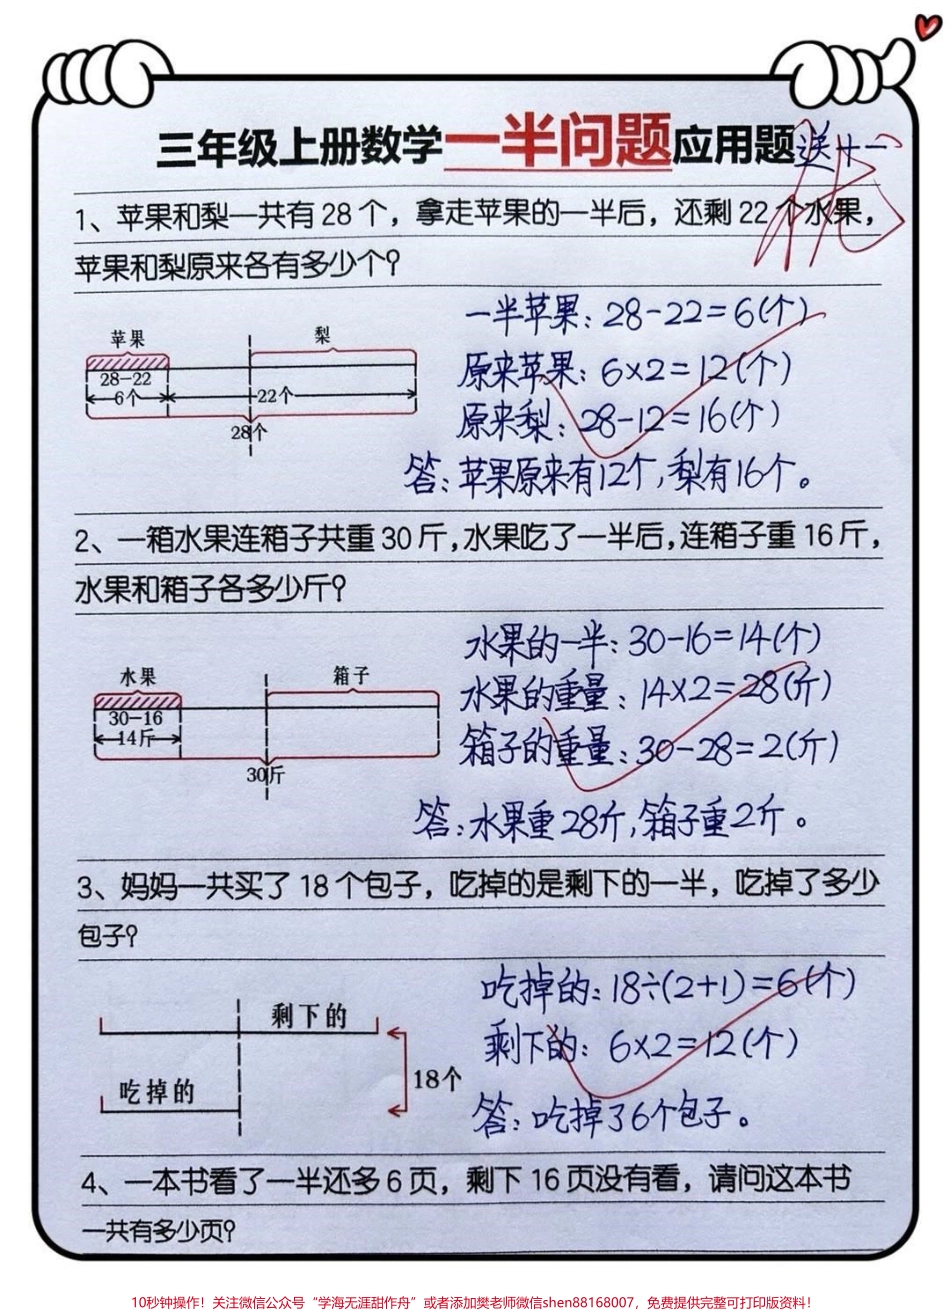 三年级上册数学一半问题应用题
优
1、苹果和梨一共有28个，拿走苹果的一半后，还剩22个水果，
苹果和梨原来各有多少个？
苹果
梨
28-22
6个
22个
28个
一半苹果：28-22=6(个)
原来苹果：6×2=12(个)
原来梨：28-12=16(个)
答：苹果原来有12个，梨有16个。
2、一箱水果连箱子共重30斤，水果吃了一半后，连箱子重16斤，
水果和箱子各多少斤？
水果
箱子
30-16
14斤
30斤
水果的一半：30-16=14(个)
水果的重量：14×2=28(斤)
箱子的重量：30-28=2(斤)
答：水果重28斤，箱子重2斤。
3、妈妈一共买了18个包子，吃掉的是剩下的一半，吃掉了多少
包子？
剩下的
吃掉的
18个
吃掉的：18÷(2+1)=6(个)
剩下的：6×2=12(个)
答：吃掉了6个包子。
4、一本书看了一半还多6页，剩下16页没有看，请问这本书
一共有多少页？
10秒钟操作！关注微信公众号“学海无涯甜作舟”或者添加樊老师微信shen88168007，免费提供完整可打印版资料！